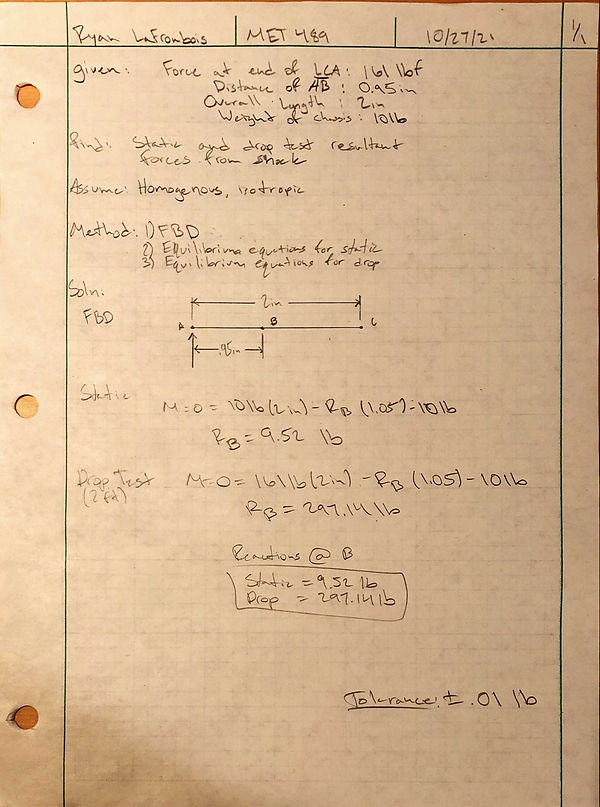 Ryan LaFrombois | MET 489 | 10/27/21 1/1
given: Force at end of LCA: 161 lbf
Distance of AB: 0.95in
Overall Length: 2in
Weight of chassis: 10lb
Find: Static and drop test resultant
forces from shock
Assume: Homogenous, isotropic
Method: 1) FBD
2) Equilibrium equations for static
3) Equilibrium equations for drop
Soln:
FBD
2in
A B C
.95in
Static M=0=10lb(2in)-RB(1.05)-10lb
RB=9.52 lb
Drop Test M=0=161lb(2in)-RB(1.05)-10lb
(2ft)
RB=297.14lb
Reactions @ B
Static = 9.52 lb
Drop = 297.14lb
Tolerance: ± .01 lb